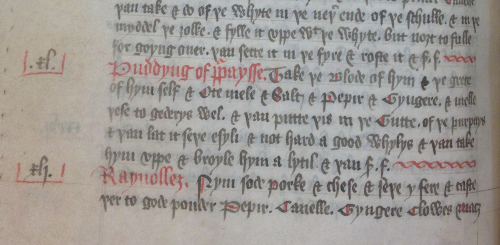 þan take & do of þe whyte in þe neþer ende of þe schulle. & in þe
myddel þe ȝolke. & fylle it vppe wt þe whyte. but noȝt to fulle
for goyng ouer. þan sette it in þe fyre & roste it & s.f.
.xl. Puddyng of ꝑpaysse. Take þe blode of hym & þe grece
of hym self & Ote mele & Salt & Pepir & Gyngere. & melle
þese to gederys wel. & þan putte þis in þe Gutte. of þe purpays
& þan lat it seþe esyli & not hard a good whyls & þan take
hym vppe & broyle hym a lytil & þan s.f.
.xlj. Raynollez. Nym sode porke & chese & seþe y fere & caste
þer to gode pouder Pepir. Canelle. Gyngere Clowes